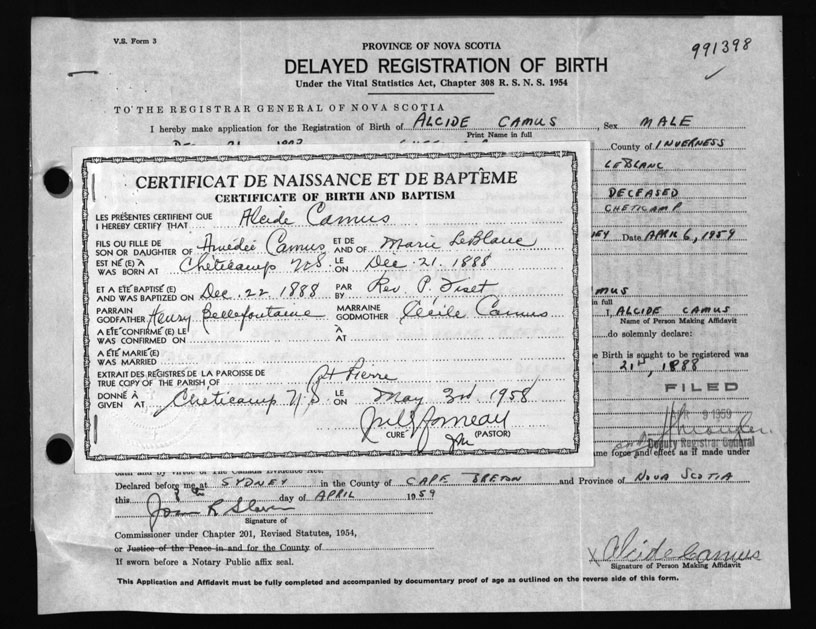 V.S. Form 3
PROVINCE OF NOVA SCOTIA
991398
DELAYED REGISTRATION OF BIRTH
Under the Vital Statistics Act, Chapter 308 R. S. N. S. 1954
TO THE REGISTRAR GENERAL OF NOVA SCOTIA
I hereby make application for the Registration of Birth of ALCIDE CAMUS, Sex MALE
Print Name in full
County of INVERNESS
LEBLANC
DECEASED
CHETICAMP
Date APRIL 6, 1959
CERTIFICAT DE NAISSANCE ET DE BAPTÊME
CERTIFICATE OF BIRTH AND BAPTISM
LES PRÉSENTES CERTIFIENT QUE
I HEREBY CERTIFY THAT Alcide Camus
FILS OU FILLE DE
SON OR DAUGHTER OF Amédée Camus ET DE AND OF Marie LeBlanc
EST NÉ (E) À
WAS BORN AT Cheticamp N.S. LE ON Dec. 21. 1888
ET A ÉTÉ BAPTISÉ (E)
AND WAS BAPTIZED ON Dec. 22. 1888 PAR BY Rev. P. Fiset
PARRAIN
GODFATHER Henry Bellefontaine MARRAINE GODMOTHER Cécile Camus
A ÉTÉ CONFIRMÉ (E) LE
WAS CONFIRMED ON À AT
A ÉTÉ MARIÉ (E)
WAS MARRIED
EXTRAIT DES REGISTRES DE LA PAROISSE DE
TRUE COPY OF THE PARISH OF St Pierre
DONNÉ À
GIVEN AT Cheticamp N.S. LE ON May 3rd 1958
CURÉ (PASTOR)
I, ALCIDE CAMUS
Name of Person Making Affidavit
do solemnly declare:
Birth is sought to be registered was
21st, 1888
FILED
9 1959
Deputy Registrar General
same force and effect as if made under
oath and by virtue of The Canada Evidence Act.
Declared before me at SYDNEY in the County of CAPE BRETON and Province of NOVA SCOTIA
this 8th day of APRIL 1959
Signature of
Commissioner under Chapter 201, Revised Statutes, 1954,
or Justice of the Peace in and for the County of
If sworn before a Notary Public affix seal.
X Alcide Camus
Signature of Person Making Affidavit
This Application and Affidavit must be fully completed and accompanied by documentary proof of age as outlined on the reverse side of this form.